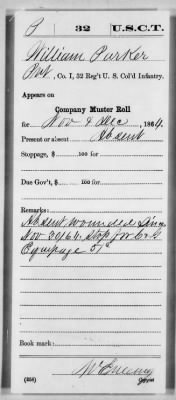 P 32 U.S.C.T.
William Parker
Pvt, Co. I, 32 Reg't U. S. Col'd Infantry.
Appears on
Company Muster Roll
for Nov & Dec, 1864.
Present or absent Absent
Stoppage, $ 100 for
Due Gov't, $ 100 for
Remarks:
Absent, wounded since
Nov 30/64. Stop for C & G
Equipage
Book mark:
(358)
Copyist.